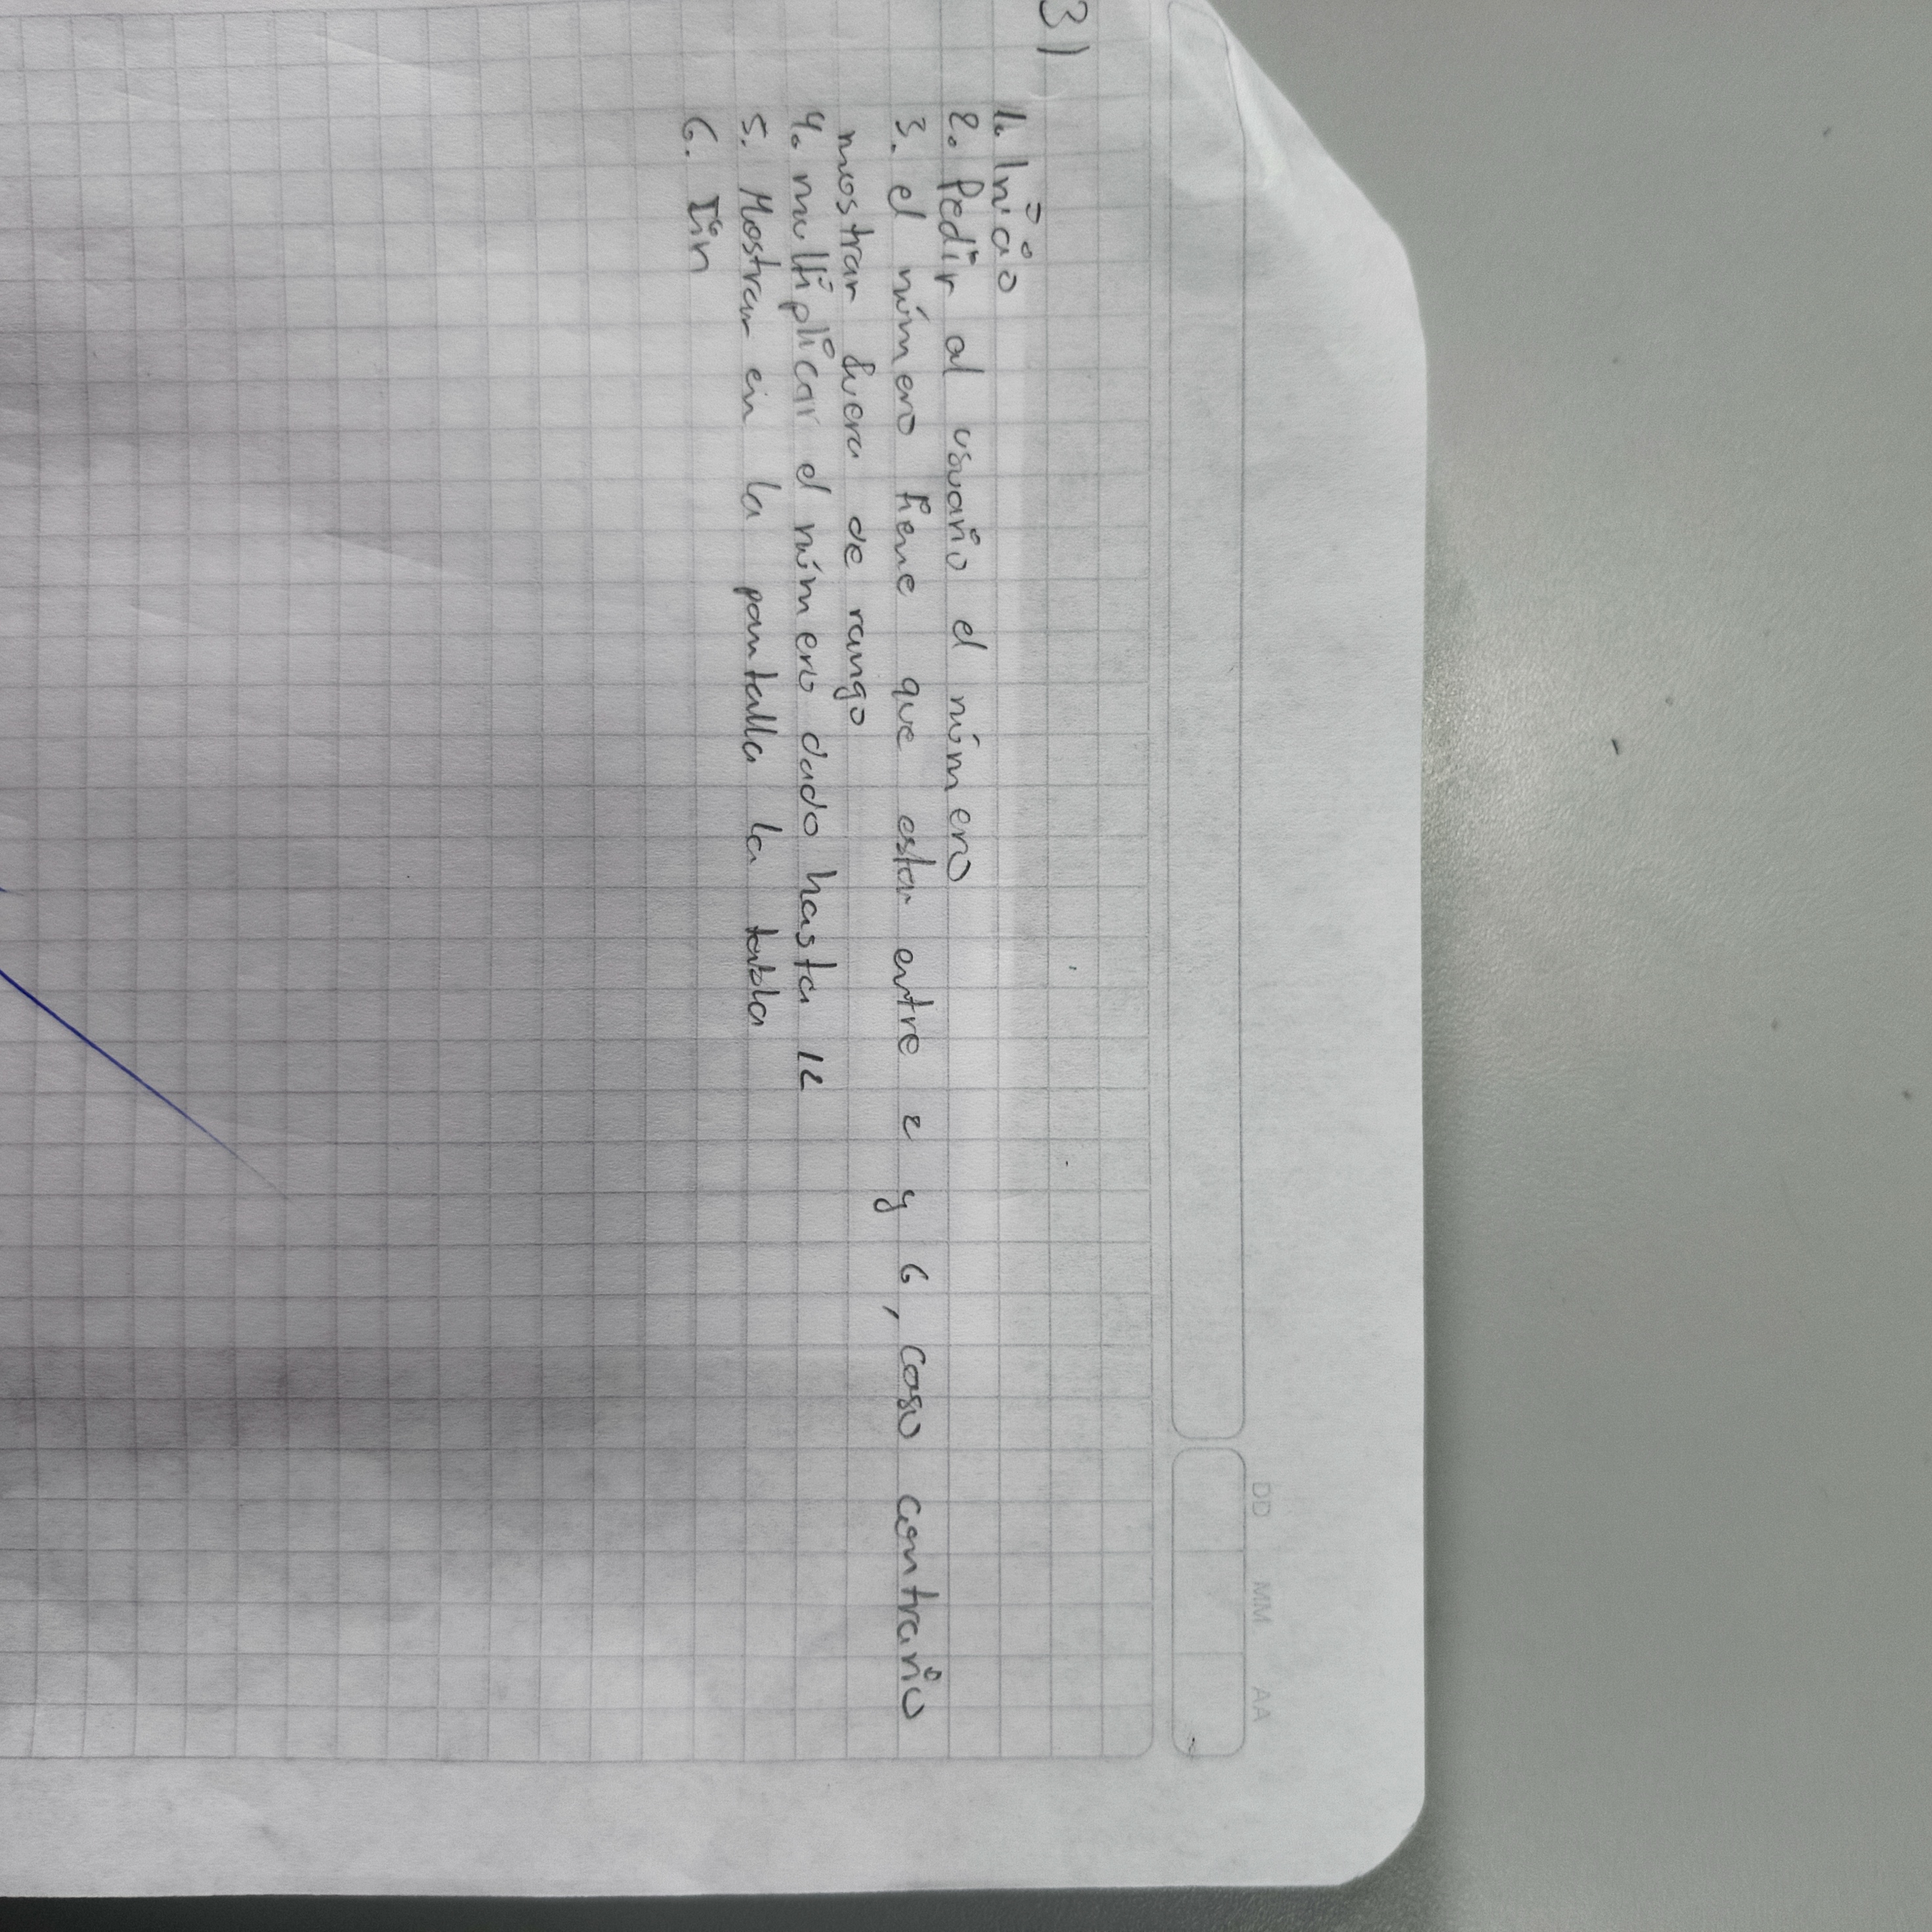 3)
1. Inicio
2. Pedir al usuario el número
3. el número tiene que estar entre 2 y 6, caso contrario
mostrar fuera de rango
4. multiplicar el número dado hasta 12
5. Mostrar en la pantalla la tabla
6. Fin
DD MM AA